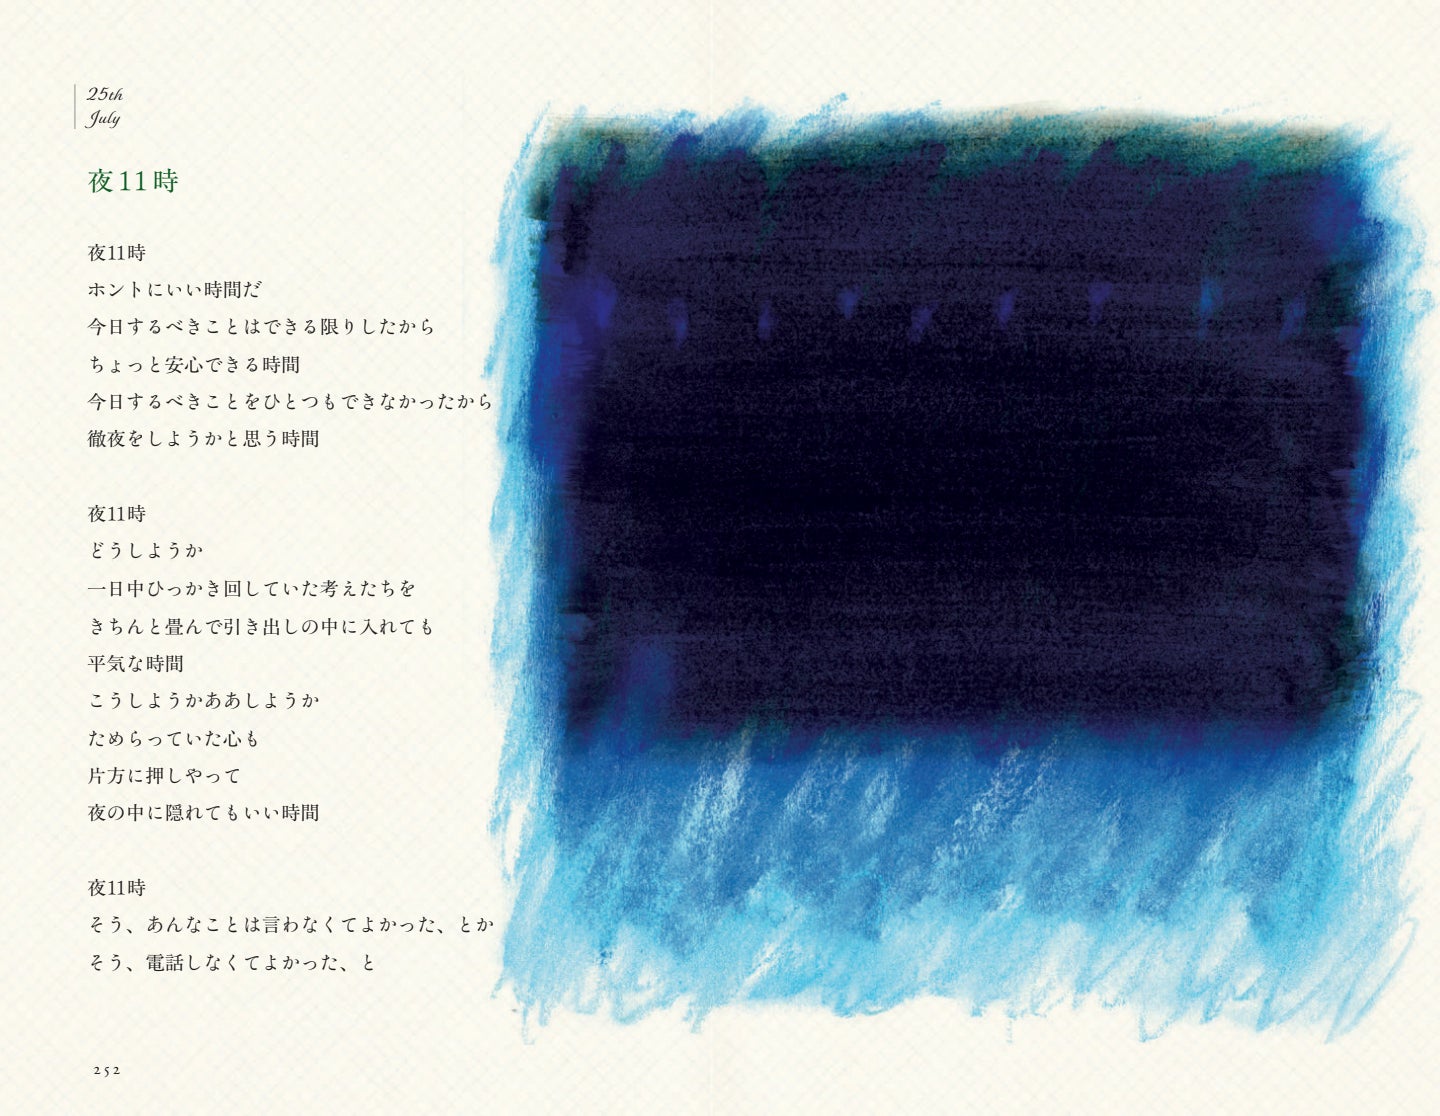 25th
July
夜11時
夜11時
ホントにいい時間だ
今日するべきことはできる限りしたから
ちょっと安心できる時間
今日するべきことをひとつもできなかったから
徹夜をしようかと思う時間
夜11時
どうしようか
一日中ひっかき回していた考えたちを
きちんと畳んで引き出しの中に入れても
平気な時間
こうしようかああしようか
ためらっていた心も
片方に押しやって
夜の中に隠れてもいい時間
夜11時
そう、あんなことは言わなくてよかった、とか
そう、電話しなくてよかった、と
252